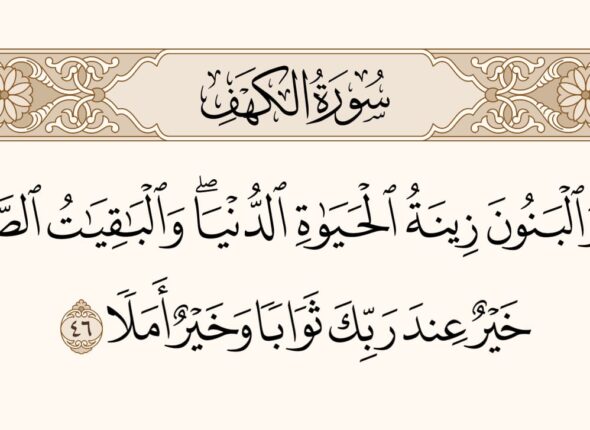 سُورَةُ الكَهۡفِ
ٱلۡبَنُونَ زِينَةُ ٱلۡحَيَوٰةِ ٱلدُّنۡيَاۖ وَٱلۡبَٰقِيَٰتُ
خَيۡرٌ عِندَ رَبِّكَ ثَوَابٗا وَخَيۡرٌ أَمَلٗا ٤٦